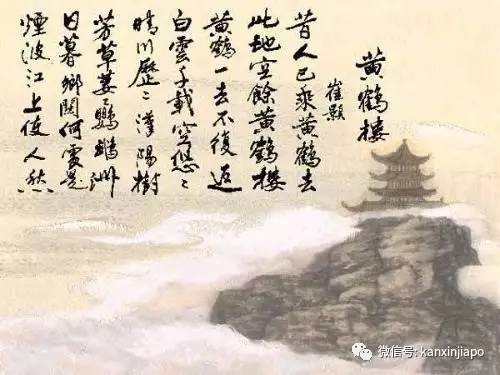 黃鶴樓
崔顥
昔人已乘黃鶴去
此地空餘黃鶴樓
黃鶴一去不復返
白雲千載空悠々
晴川歷々漢陽樹
芳草萋々鸚鵡洲
日暮鄉關何處是
煙波江上使人愁
微信号: kanxinjiapo